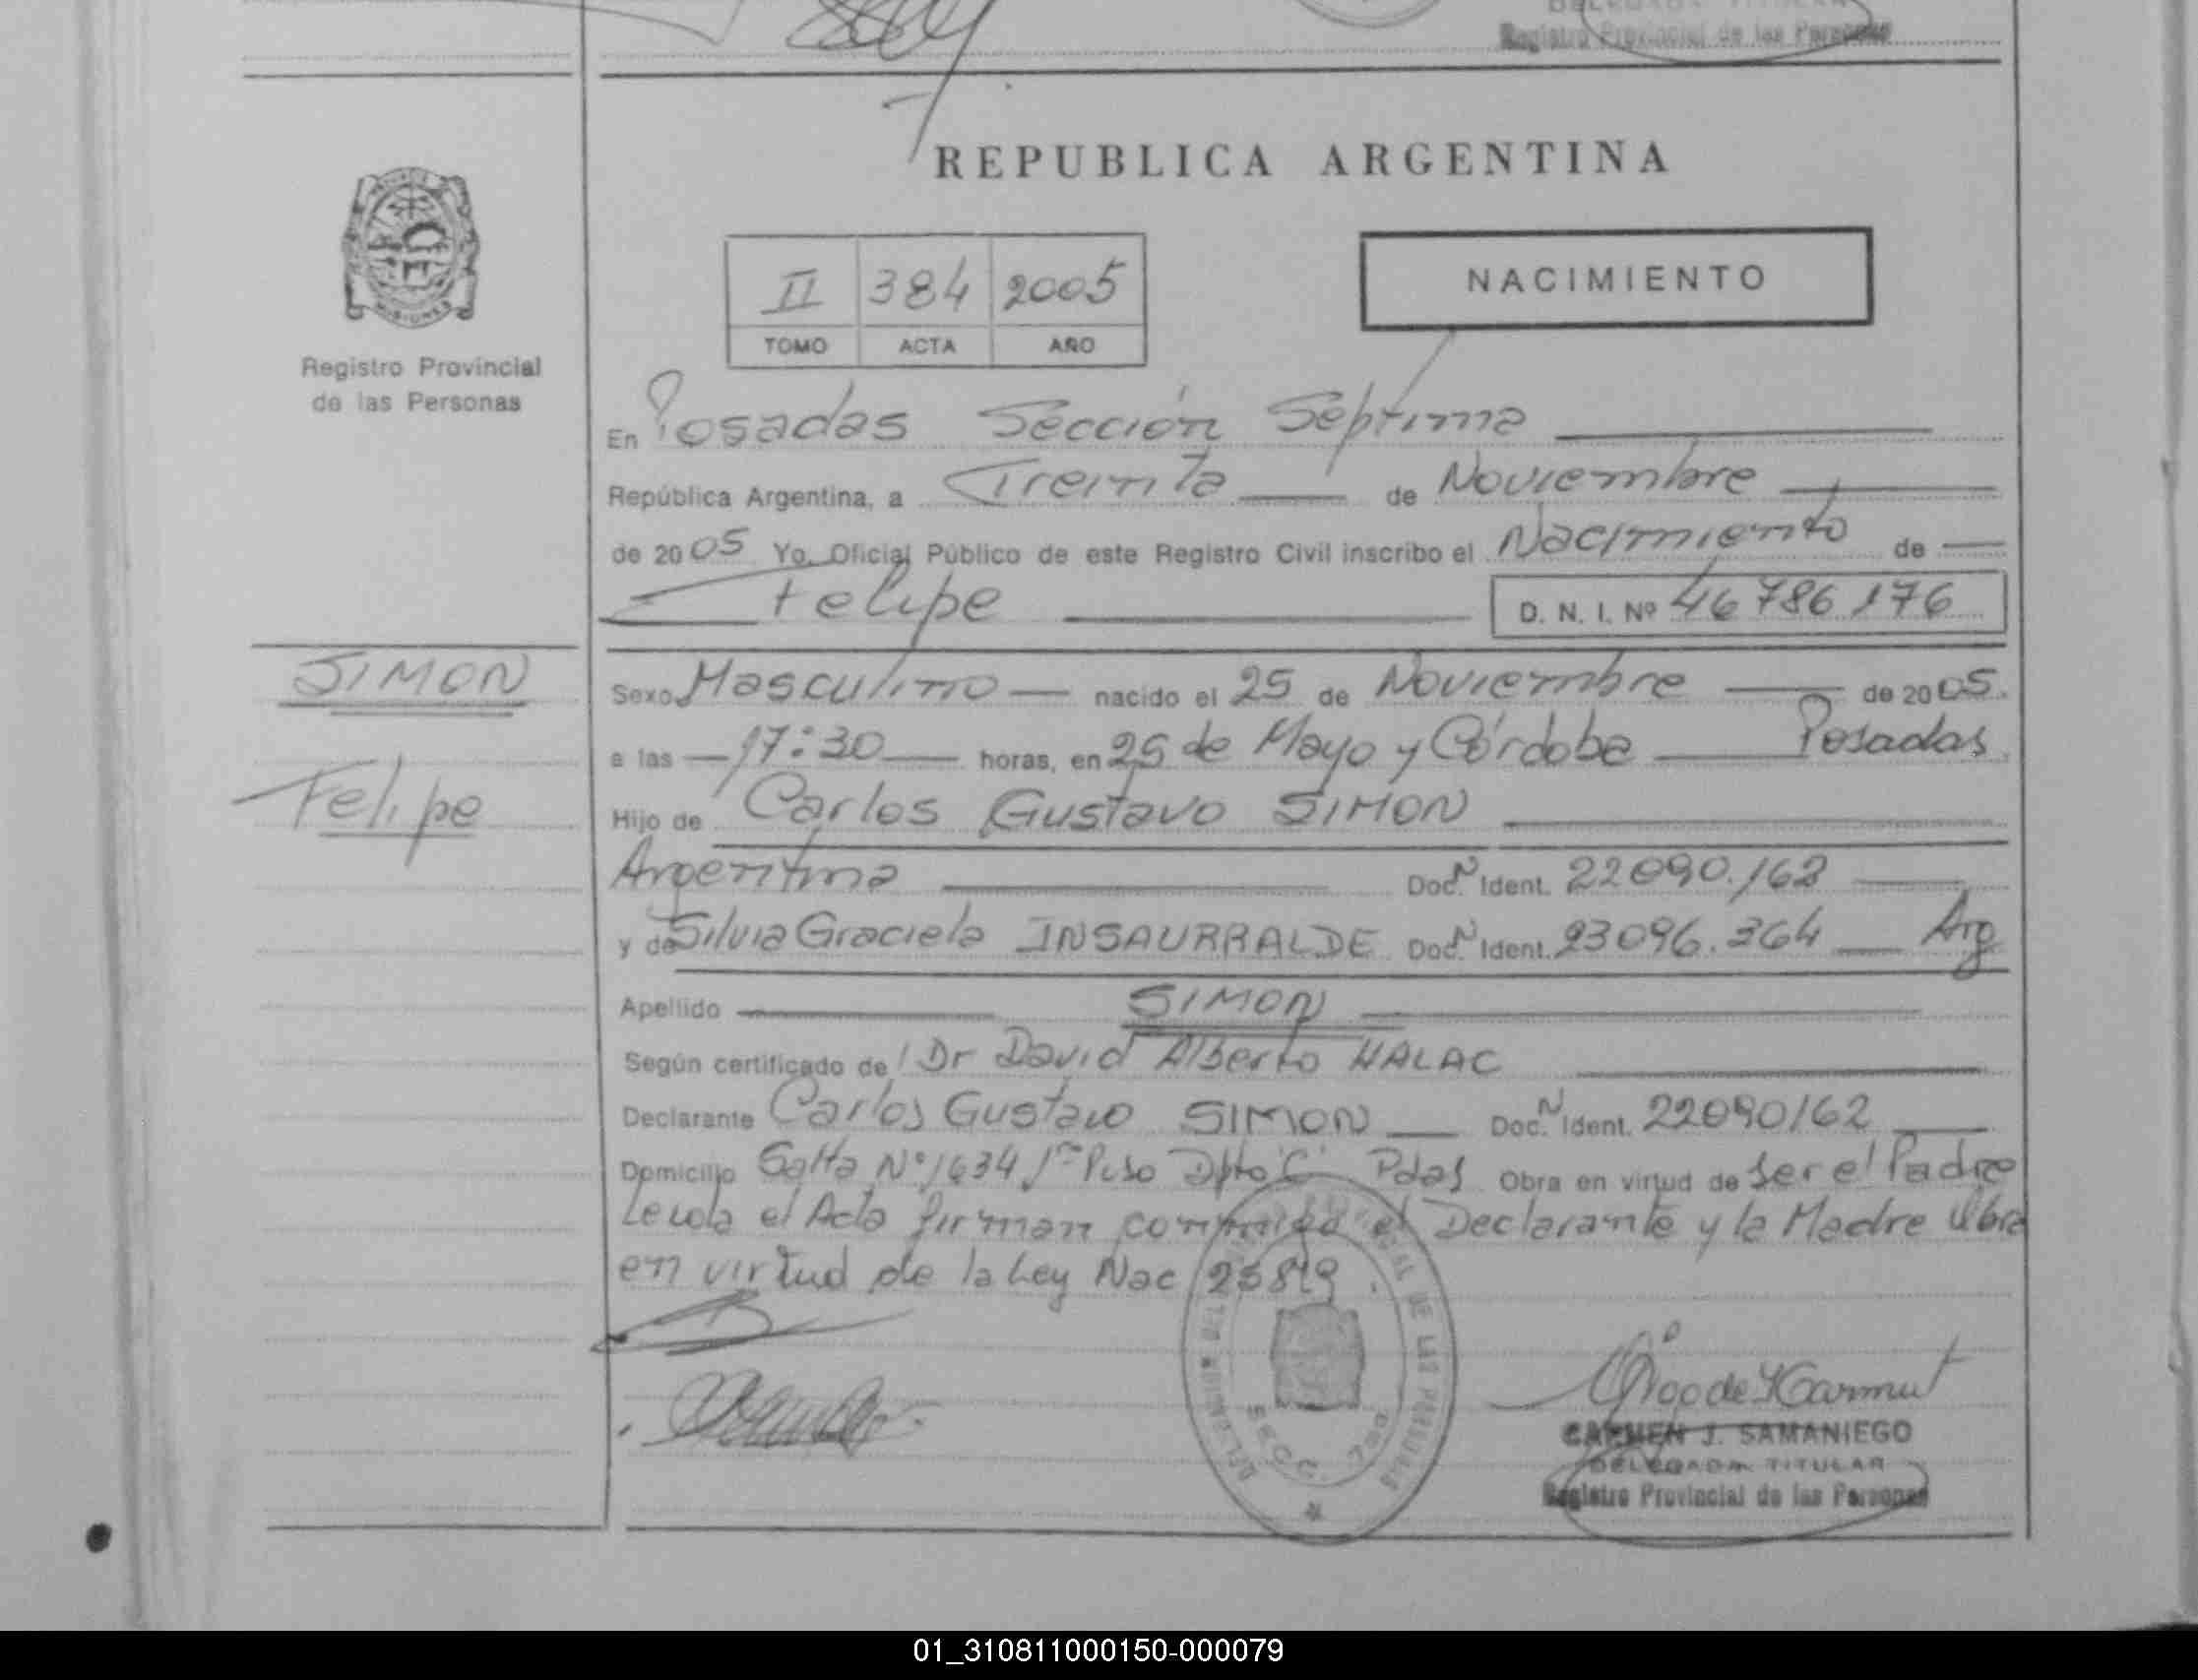 Registro Provincial de las Personas
REPUBLICA ARGENTINA
MISIONES
Registro Provincial
de las Personas
II 384 2005
TOMO ACTA AÑO
NACIMIENTO
En Posadas Sección Septima
República Argentina, a Treinta de Noviembre
de 2005 Yo, Oficial Público de este Registro Civil inscribo el Nacimiento de
Felipe D. N. I. Nº 46786176
SIMON
Felipe
Sexo Masculino nacido el 25 de Noviembre de 2005.
a las 17:30 horas, en 25 de Mayo y Córdoba Posadas
Hijo de Carlos Gustavo SIMON
Argentina Doc. N Ident. 22090.162
y de Silvia Graciela INSAURRALDE Doc. N Ident. 23096.364 Arg
Apellido SIMON
Según certificado de l Dr David Alberto HALAC
Declarante Carlos Gustavo SIMON Doc. N Ident. 22090162
Domicilio Salta Nº 1634 1er Piso Dpto "C" Pdas Obra en virtud de Ser el Padre
Leida el Acta firman conmigo el Declarante y la Madre Obra
en virtud de la Ley Nac
CARMEN J. SAMANIEGO
DELEGADA TITULAR
Registro Provincial de las Personas
01_310811000150-000079